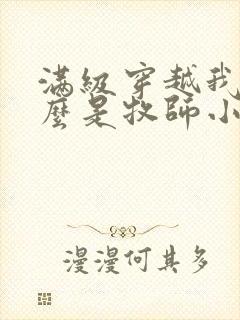 滿級穿越我
麼是牧師小
漫漫何其多